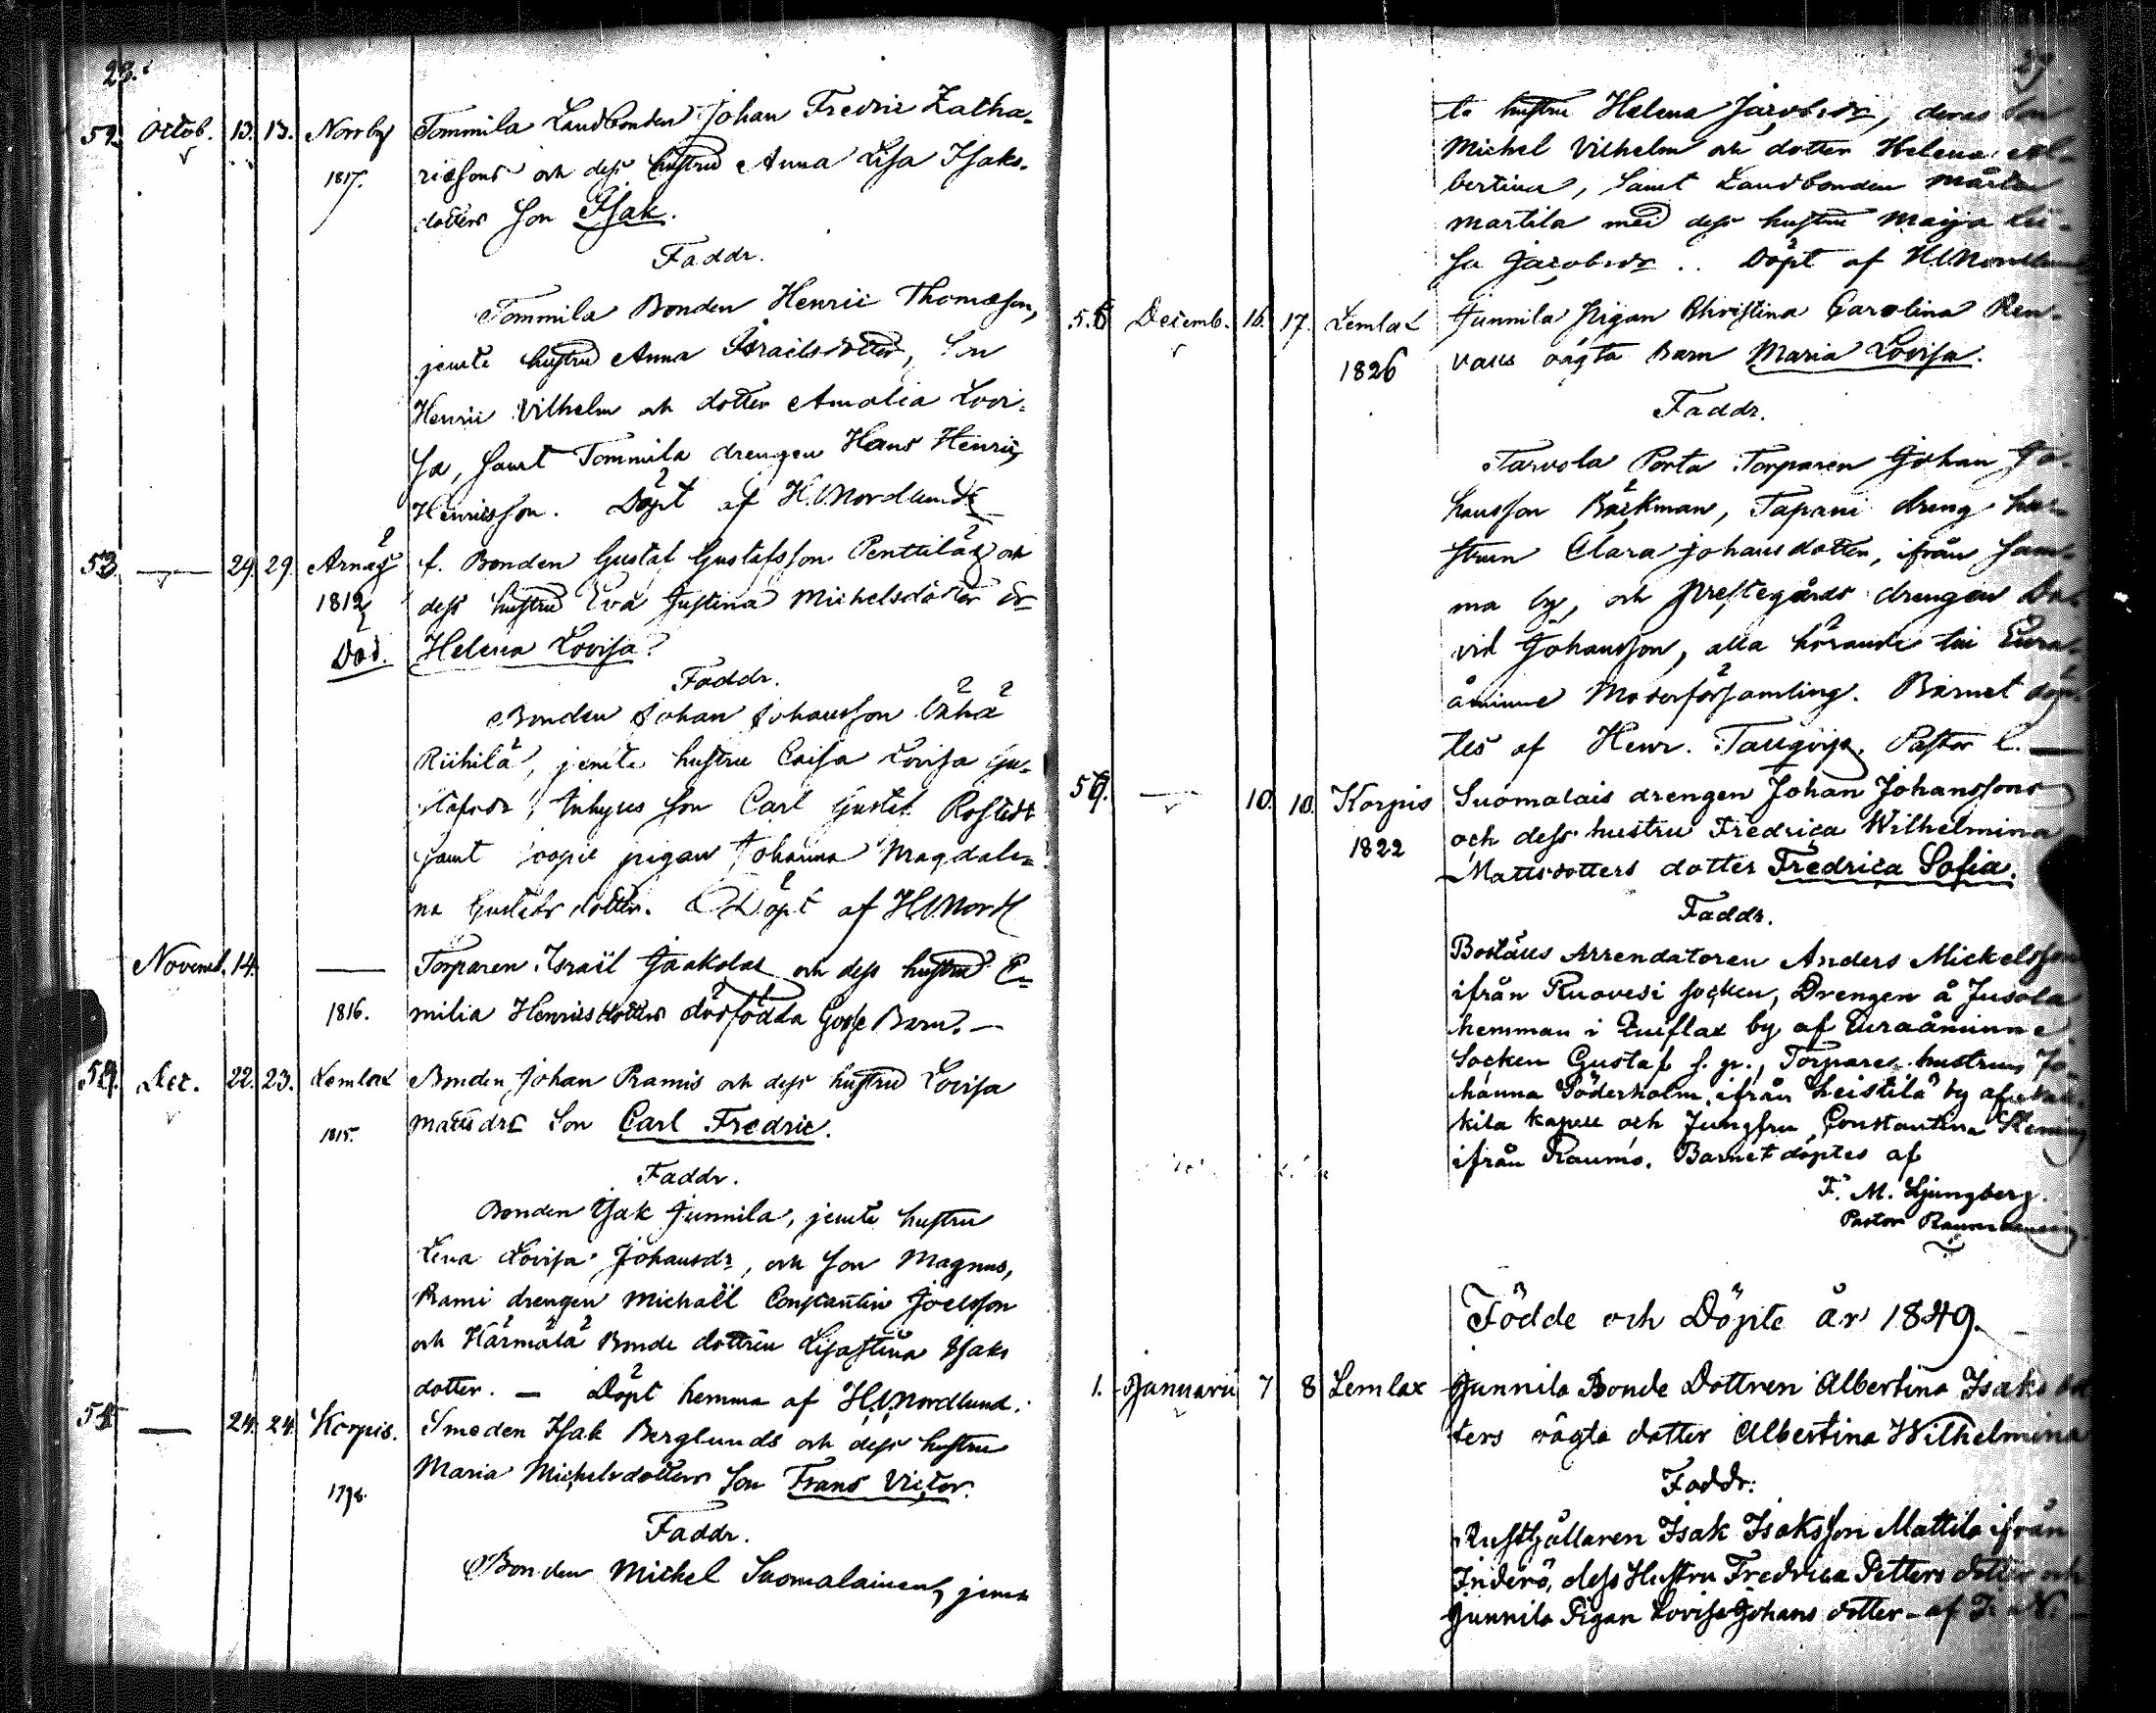 28.
52. Octob. 13. 13. Norrby Tommila Landbonden Johan Fredric Zacha-
1817. riæsons och dess hustru Anna Lisa Isaks-
dotters Son Isak.
Faddr.
Tommila Bonden Henric Thomæson,
jemte hustru Anna Israelsdotter, Son
Henric Vilhelm och dotter Amalia Lovi-
sa, samt Tommila drengen Hans Henric
Henricsson. Döpt af H.U.Nordlund
53. — 29. 29. Arnäs f. Bonden Gustaf Gustafsson Penttilä och
1812 dess hustru Eva Justina Michelsdotter
Död. Helena Lovisa
Faddr.
Bonden Johan Johansson Vähä
Riihilä, jemte hustru Caisa Lovisa Gu-
stafsdr, Inhyses Son Carl Gustaf Rostedt
samt pigan Johanna Magdale-
na Gustafsdotter. Döpt af H.U.Nordl
Novemb. 14. — Torparen Israël Jaakolas och dess hustru E-
1816. milia Henricsdotters dödfödda Gosse Barn. —
54. Dec. 22. 23. Lemlax Bonden Johan Pramis och dess hustru Lovisa
1815. Mattsdrs Son Carl Fredric.
Faddr.
Bonden Isak Junnila, jemte hustru
Lena Lovisa Johansdr, och Son Magnus,
Prami drengen Michaël Constantin Joelsson
och Härmälä Bonde dottren Lisastina Isaks
dotter. — Döpt hemma af H.U.Nordlund.
55. — 24. 24. Korpis. Smeden Isak Berglunds och dess hustru
Maria Michelsdotters Son Frans Victor.
1798.
Faddr.
Bonden Michel Suomalainen, jem
29
te hustru Helena Jacobsdr, deras Son
Michel Vilhelm och dotter Helena Al-
bertina, samt Landbonden Mårten
Martila med dess hustru Maija Lii-
sa Jacobsdr.. Döpt af H.U.Nordlund
56. Decemb. 16. 17. Lemlax Junnila Pigan Christina Carolina Ren-
1826 vaus oägta Barn Maria Lovisa.
Faddr.
Tarvola Porta Torparen Johan Jo-
hansson Bäckman, Tapani dreng hu-
strun Clara Johansdotter, ifrån sam-
ma by, och Prestegårds drengen Da-
vid Johansson, alla hörande till Eura-
åminne Moderförsamling. Barnet döp-
tes af Henr. Tallqvist. Pastor l. —
57. — 10. 10. Korpis Suomalais drengen Johan Johanssons
1822 och dess hustru Fredrica Wilhelmina
Mattsdotters dotter Fredrica Sofia.
Faddr.
Boställs Arrendatoren Anders Mickelsson
ifrån Ruovesi socken, Drengen å Jusola
hemman i Quiflax by af Euraåminne
Socken Gustaf f. p., Torpare hustrun Jo-
hanna Söderholm ifrån Leistilä by af
kila kapell och Jungfru Constantina
ifrån Raumo. Barnet döptes af
F. M. Ljungberg.
Pastor
Födde och Döpte år 1849.
1. Januarii 7 8 Lemlax Junnila Bonde Dottren Albertina Isaks do
ters oägta dotter Albertina Wilhelmina
Faddr:
Rusthållaren Isak Isaksson Mattila ifrån
Inderö, dess Hustru Fredrica Petters dotter och
Junnila Pigan Lovisa Johans dotter - af